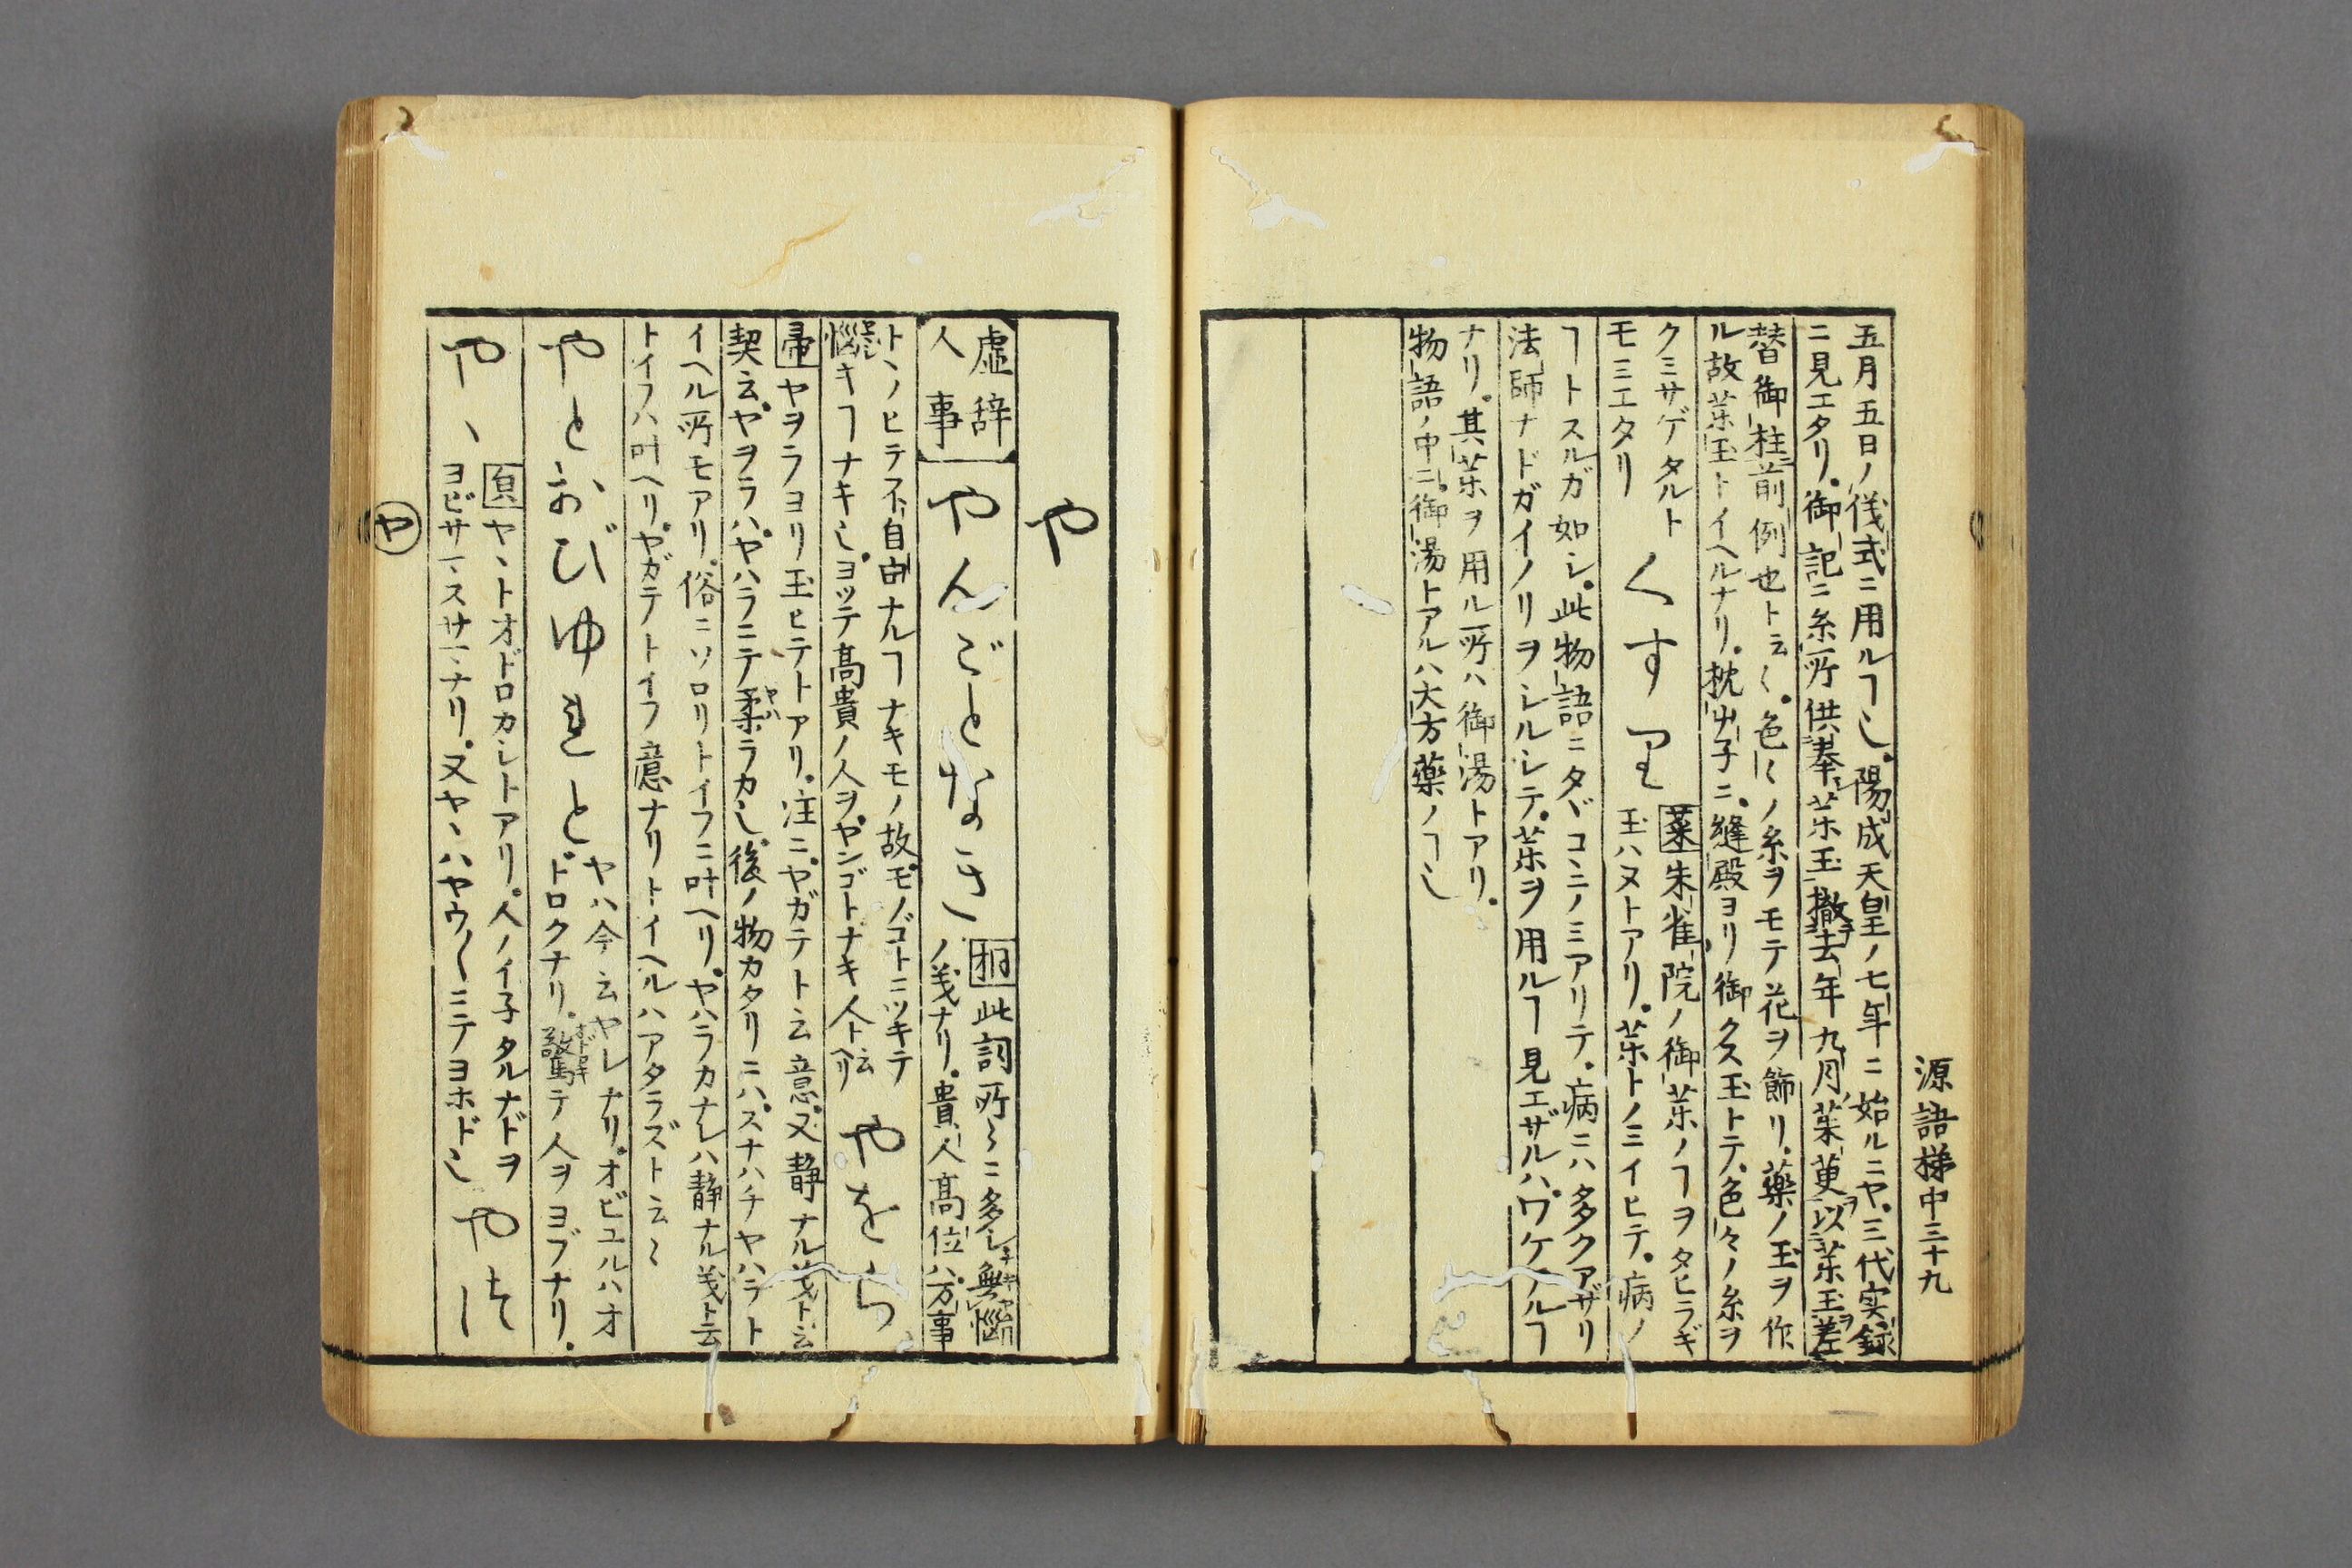 源語梯中三十九
五月五日ノ儀式ニ用ルヿ也。陽成天皇ノ七年ニ始ルニヤ。三代実録
ニ見エタリ。御記ニ糸所供奉茶玉撤去年九月茱萸以茶玉差
替御柱前例也ト云〻。色〻ノ糸ヲモテ花ヲ飾リ。藥ノ玉ヲ作
ル故茶玉トイヘルナリ。枕草子ニ。縫殿ヨリ御クス玉トテ。色々ノ糸ヲ
クミサゲタルト
モミエタリ
くすり
葉朱雀院ノ御茶ノヿヲタヒラギ
玉ハヌトアリ。茶トノミイヒテ。病ノ
ヿトスルガ如シ。此物語ニタヾコヽニノミアリテ。病ニハ多クアザリ
法師ナドガイノリヲシルシテ。茶ヲ用ルヿ見エザルハ。ワケアルヿ
ナリ。其茶ヲ用ル所ハ御湯トアリ。
物語ノ中ニ。御湯トアルハ大方藥ノヿ也
や
虚辞
人事
やんごとなき
桐此詞所〻ニ多シ無惱
ノ義ナリ。貴人高位ハ。万事
トヽノヒテ不自由ナルヿナキモノ故。モノゴトニツキテ
惱キヿナキ也。ヨツテ高貴ノ人ヲ。ヤンゴトナキ人ト云ヘリ
やをら
帚ヤヲラヨリ玉ヒテトアリ。注ニ。ヤガテト云意。又静ナル義ト云
契云。ヤヲラハ。ヤハラニテ柔ラカ也。後ノ物カタリニハ。スナハチヤハラト
イヘル所モアリ。俗ニソロリトイフニ叶ヘリ。ヤハラカナレハ静ナル義ト云
トイフハ叶ヘリ。ヤガテトイフ意ナリトイヘルハアタラズト云〻
やとおびゆれと
ヤハ今云ヤレナリ。オビユルハオ
ドロクナリ。驚テ人ヲヨブナリ。
やゝ
ヤヽトオドロカシトアリ。人ノイ子タルナドヲ
ヨビサマスサマナリ。又ヤヽハヤウ〳〵ミテヨホド也
やはし
ヤ